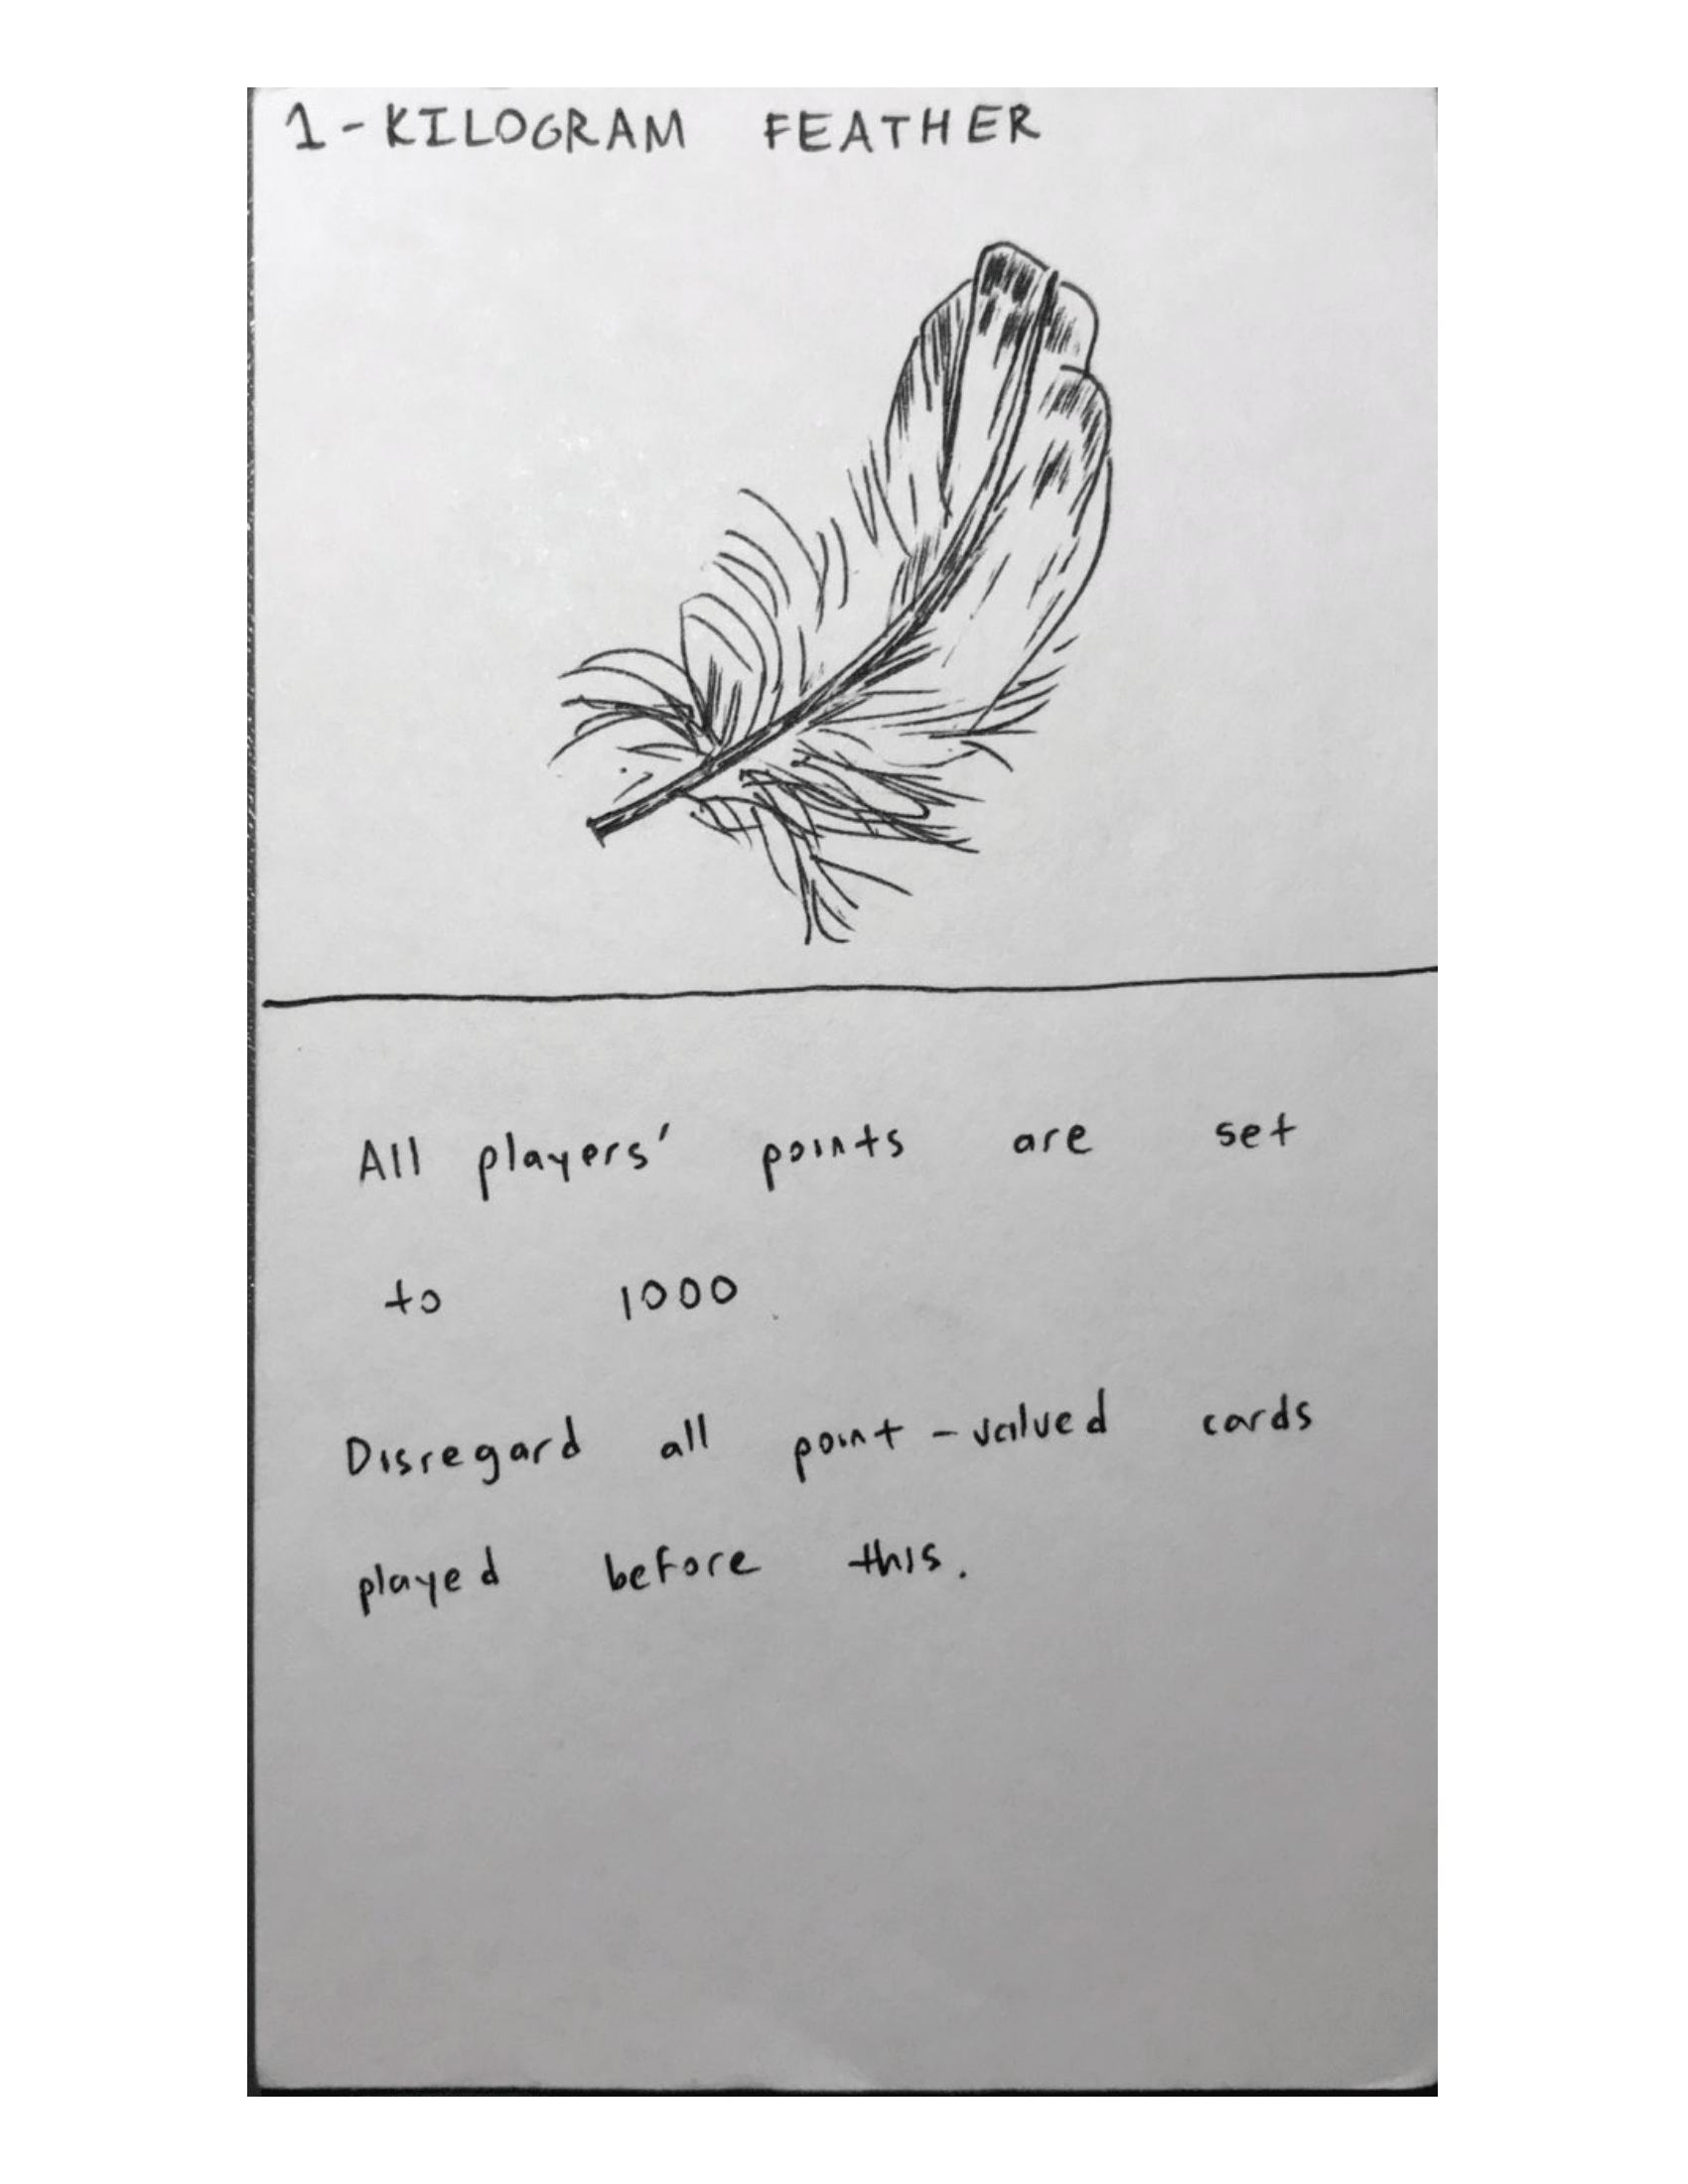 1-KILOGRAM FEATHER
All players' points are set
to 1000
Disregard all point-valued cards
played before this.